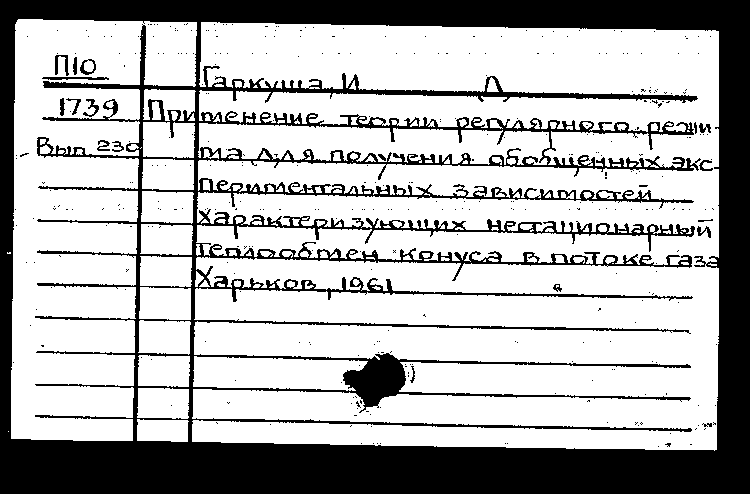 П10
Гаркуша, И Л
1739 Применение теории регулярного режи-
Вып 230 ма для получения обобщенных экс-
периментальных зависимостей,
характеризующих нестационарный
теплообмен конуса в потоке газа
Харьков, 1961